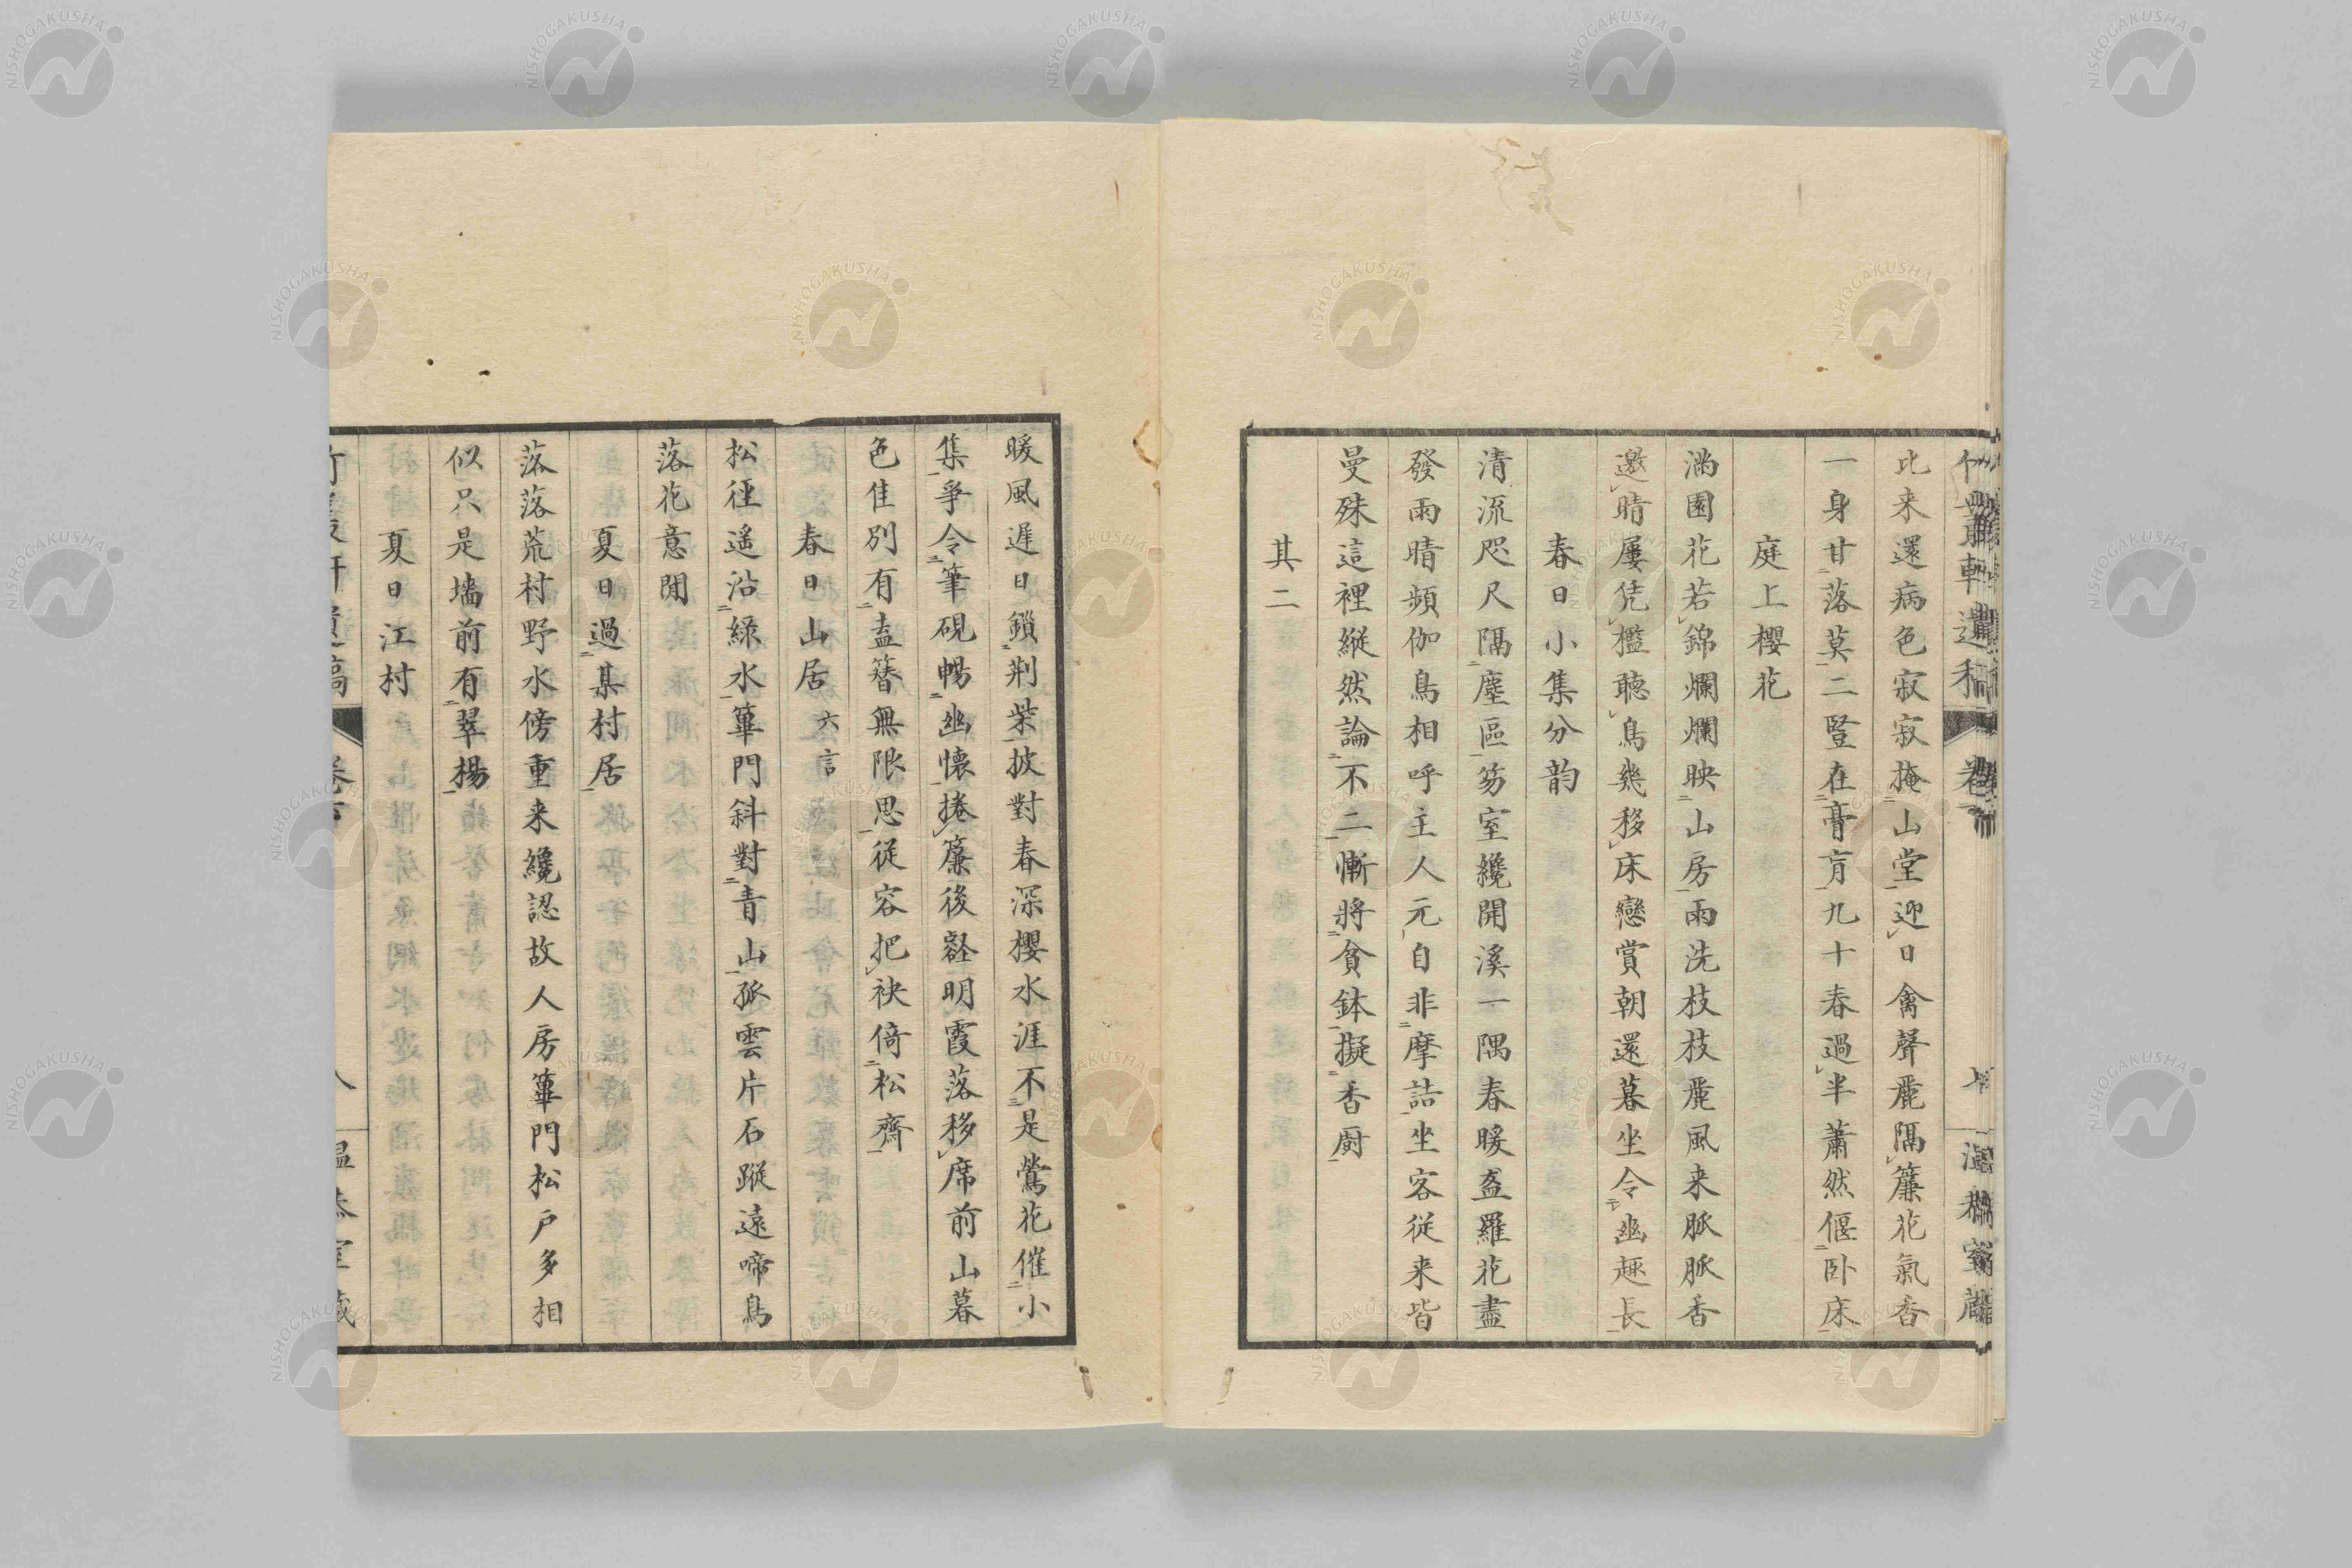 比来還病色寂寂掩山堂迎日禽聲麗隔簾花氣香
一身甘落莫二豎在膏肓九十春過半蕭然偃卧床
庭上櫻花
滿園花若錦爛爛映山房雨洗枝枝麗風来脈脈香
邀晴屢凭檻聽鳥幾移床戀賞朝還暮坐令幽趣長
春日小集分韵
清流咫尺隔塵區芴室纔開溪一隅春暖盔羅花盡
發雨晴頻伽鳥相呼主人元自非摩詰坐客従来皆
曼殊這裡縦然論不二慚將貧鉢擬香厨
其二
暖風遅日鎖荆柴披對春深櫻水涯不是鶯花催小
集爭令筆硯暢幽懐捲簾後壑明霞落移席前山暮
色佳別有盍簪無限思従容把袂倚松齋
春日山居 六言
松徑遥沿緑水篳門斜對青山孤雲片石蹤遠啼鳥
落花意閒
夏日過某村居
落落荒村野水傍重来纔認故人房篳門松戸多相
似只是墻前有翠楊
夏日江村